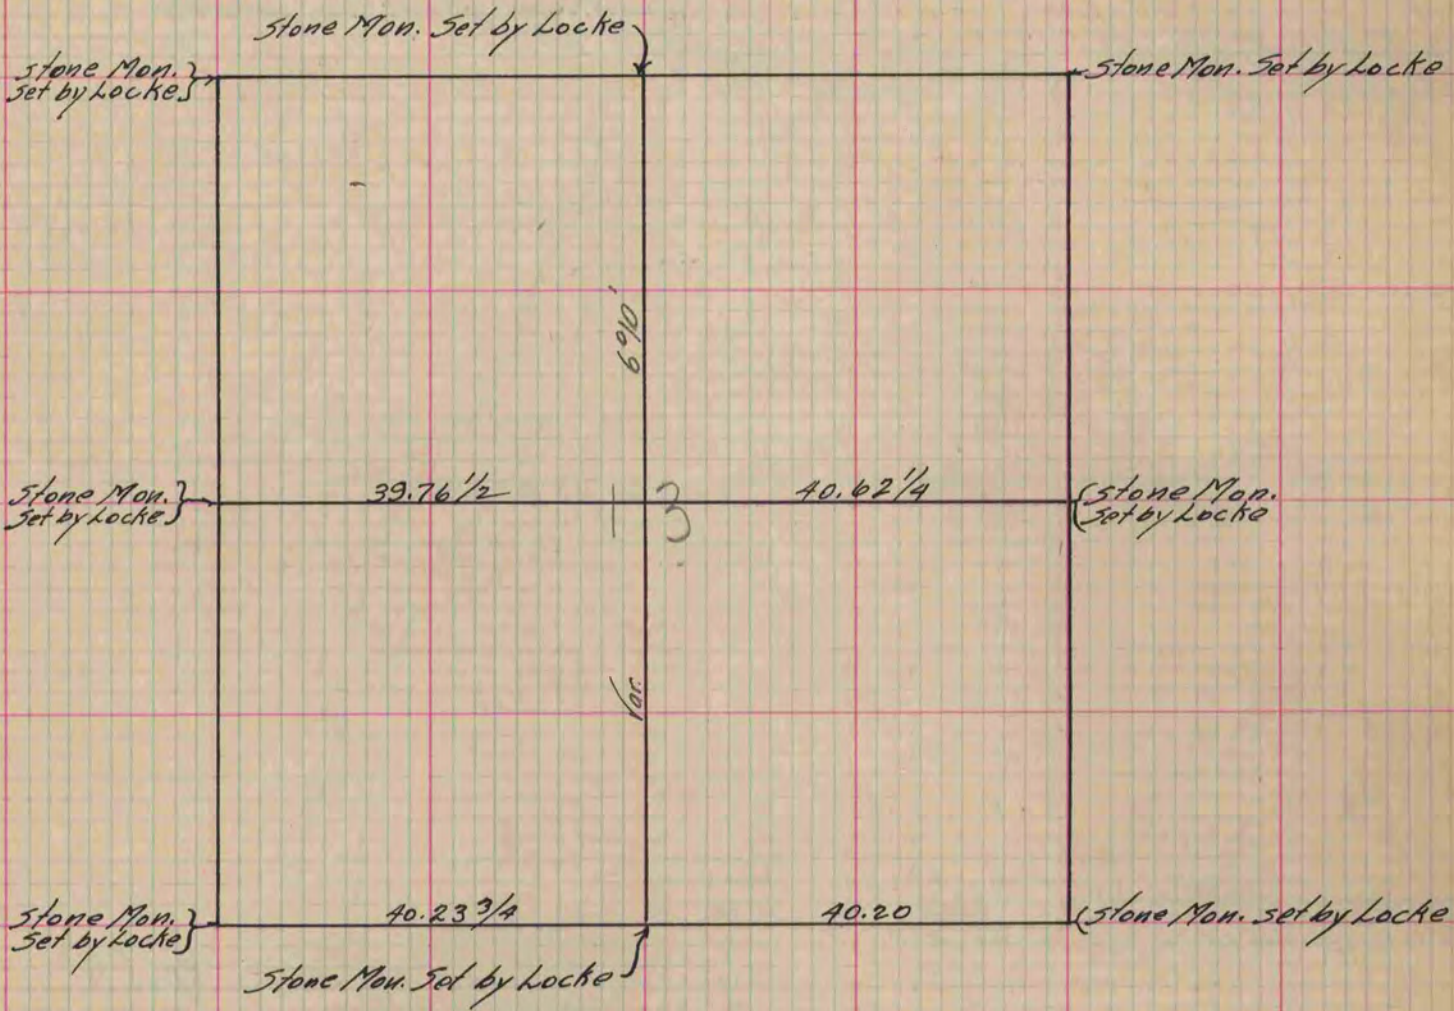 Stone Mon. Set by Locke
Stone Mon.
Set by Locke
Stone Mon. Set by Locke
6°10'
Stone Mon.
Set by Locke
39.76 1/2
13
40.62 1/4
Stone Mon.
Set by Locke
Var.
Stone Mon.
Set by Locke
40.23 3/4
40.20
Stone Mon. set by Locke
Stone Mon. Set by Locke